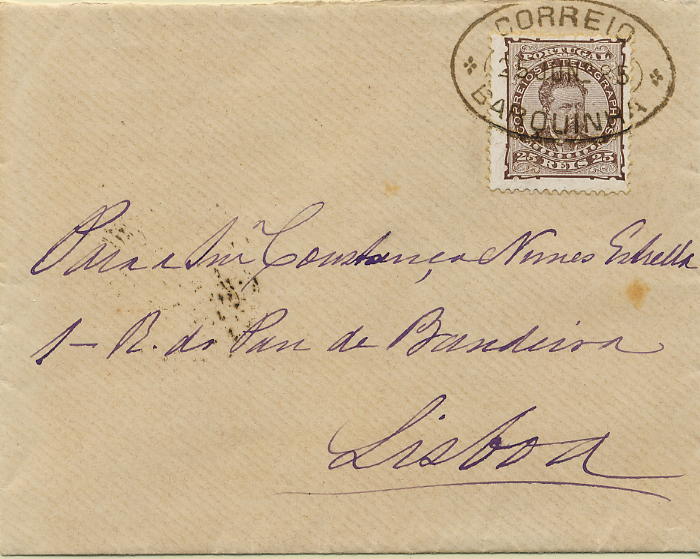 CORREIO
25 JUN. 85
BARQUINHA
PORTUGAL
CORREIOS E TELEGRAPHOS
25 REIS 25
Para a Snrª Constança Nunes Estrella
1- R. do Pau de Bandeira
Lisboa